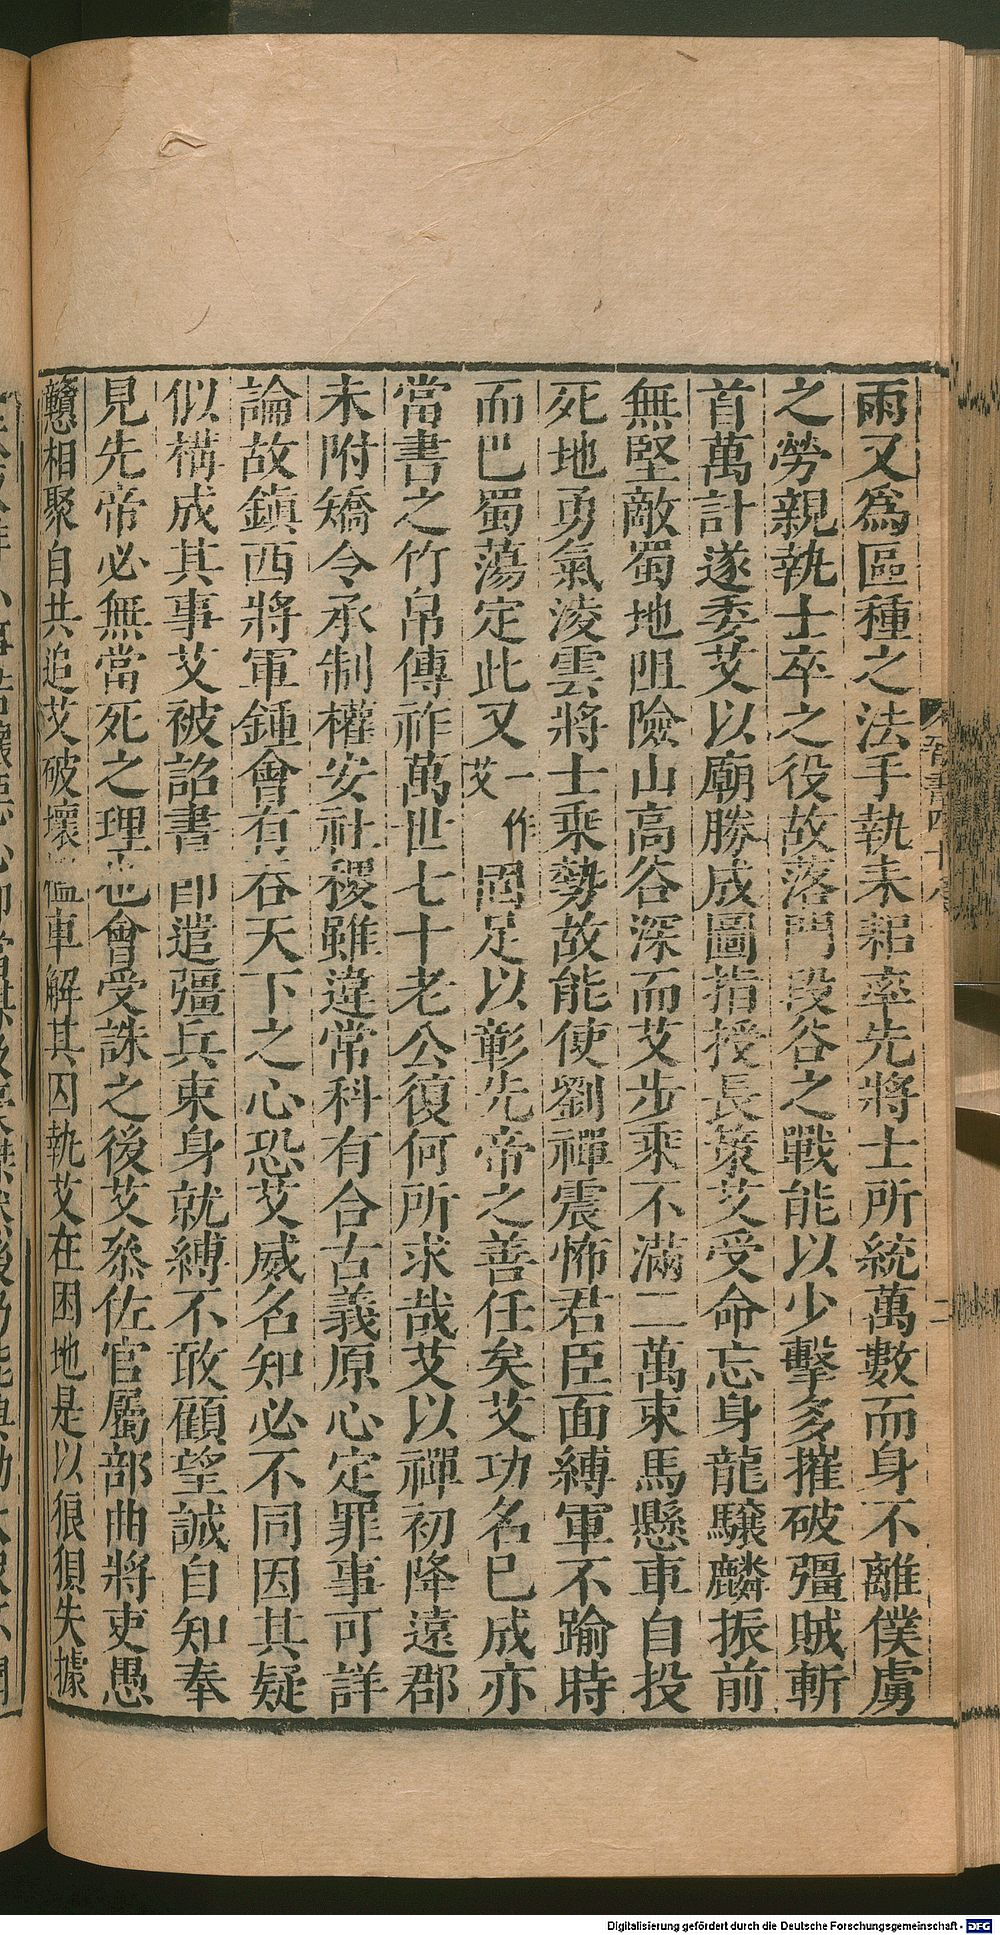 雨又爲區種之法手執耒耜率先將士所統萬數而身不離僕虜
之勞親執士卒之役故落門段谷之戰能以少擊多摧破彊賊斬
首萬計遂委艾以廟勝成圖指授長策艾受命忘身龍驤麟振前
無堅敵蜀地阻險山高谷深而艾步乘不滿二萬束馬懸車自投
死地勇氣淩雲將士乘勢故能使劉禪震怖君臣面縛軍不踰時
而巴蜀蕩定此又一作艾固足以彰先帝之善任矣艾功名已成亦
當書之竹帛傳祚萬世七十老公復何所求哉艾以禪初降遠郡
未附矯令承制權安社稷雖違常科有合古義原心定罪事可詳
論故鎮西將軍鍾會有吞天下之心恐艾威名知必不同因其疑
似構成其事艾被詔書即遣彊兵束身就縛不敢顧望誠自知奉
見先帝必無當死之理也會受誅之後艾叅佐官屬部曲將吏愚
戇相聚自共追艾破壞檻車解其囚執艾在困地是以狼狽失據
晉書四十八
二
Digitalisierung gefördert durch die Deutsche Forschungsgemeinschaft - DFG